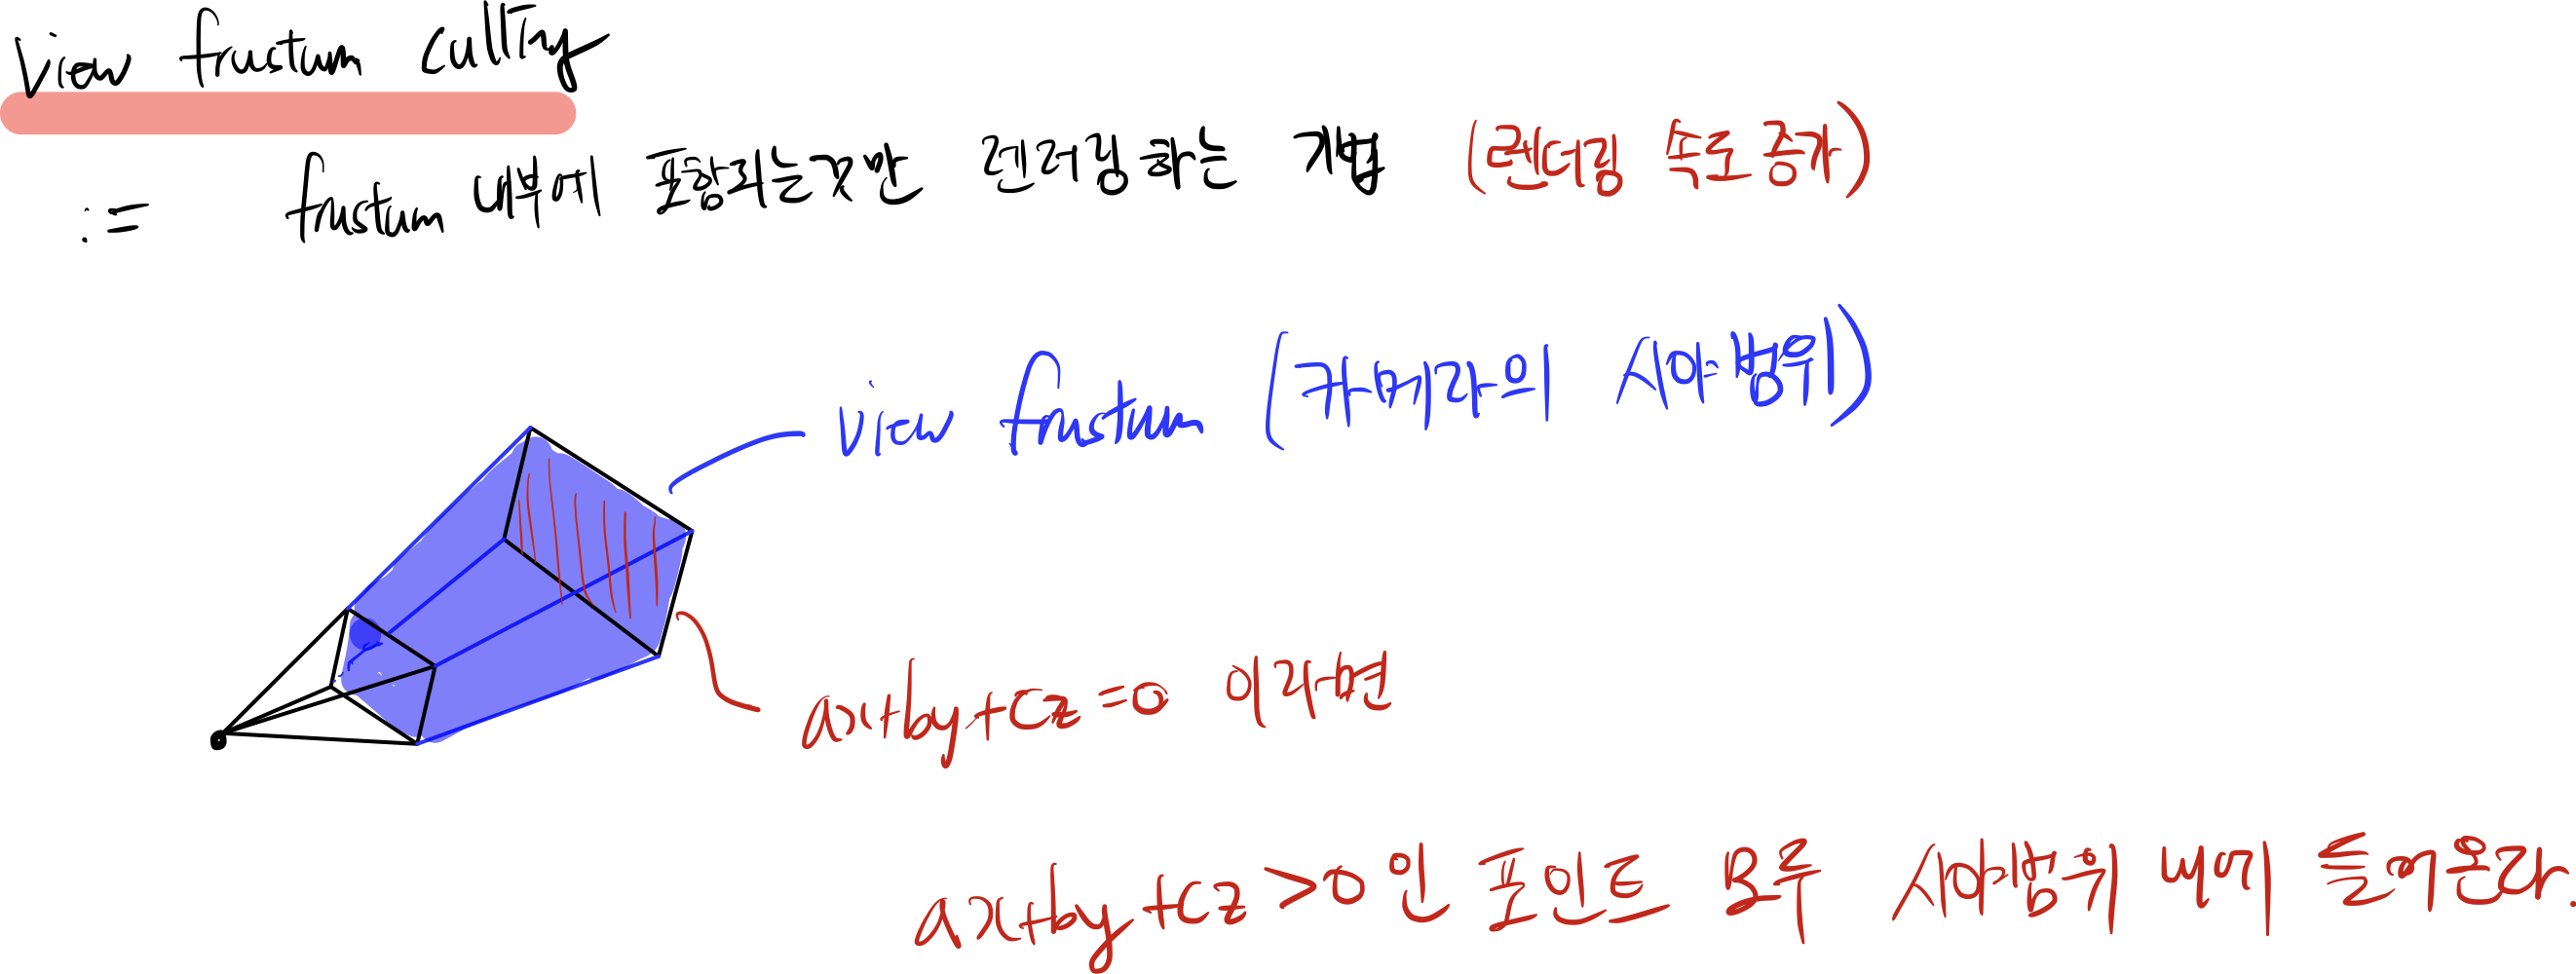 View frustum culling
:= frustum 내부에 포함되는것만 렌더링하는 기법 (렌더링 속도 증가)
view frustum (카메라의 시야범위)
ax+by+cz=0 이라면
ax+by+cz>0인 포인트 모두 시야범위 내에 들어온다.